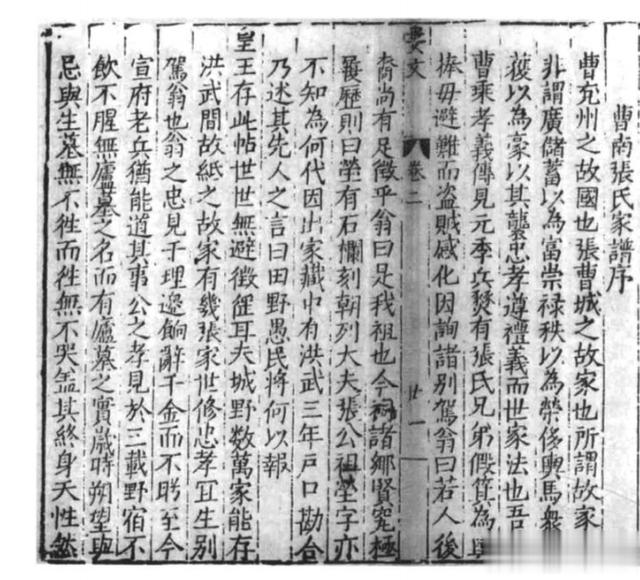 曹南張氏家譜序
曹兖州之故國也張曹城之故家也所謂故家
非謂廣儲蓄以為富崇禄秩以為榮侈輿馬衆
以為豪以其襲忠孝遵禮義而世家法也吾
曹乘孝義傳見元季兵燹有張氏兄弟假箕為
捧母避難而盗賊感化因詢諸别駕翁曰若人後
裔尚有足徵乎翁曰是我祖也今祠諸鄉賢究極
履歷則曰塋有石欄刻朝列大夫張公祖塋字亦
不知為何代因出家藏中有洪武三年戸口勘合
乃述其先人之言曰田野愚民将何以報
皇王存此帖世世無避徴徭耳夫城野数萬家能存
洪武間故紙之故家有幾張家世修忠孝宜生别
駕翁也翁之忠見于理邊餉辭千金而不眄至今
宣府老兵猶能道其事公之孝見於三載野宿不
飲不腥無廬墓之名而有廬墓之實歲時朔望與
忌與生墓無不徃而徃無不哭盖其終身天性然
文
卷二
廿一